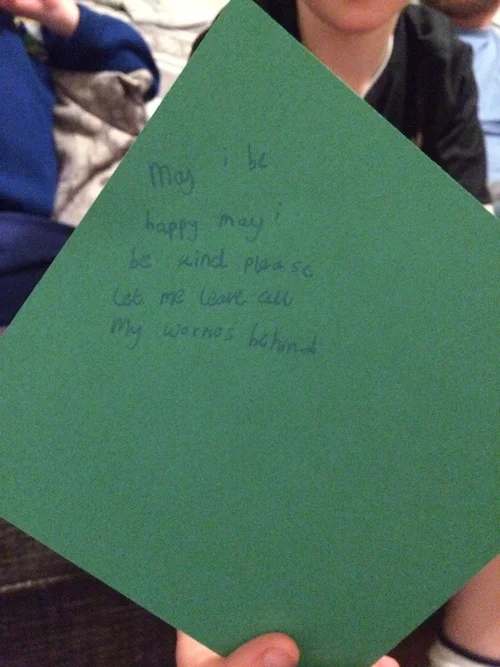 May i be
happy may i
be kind please
Let me leave all
My worries behind